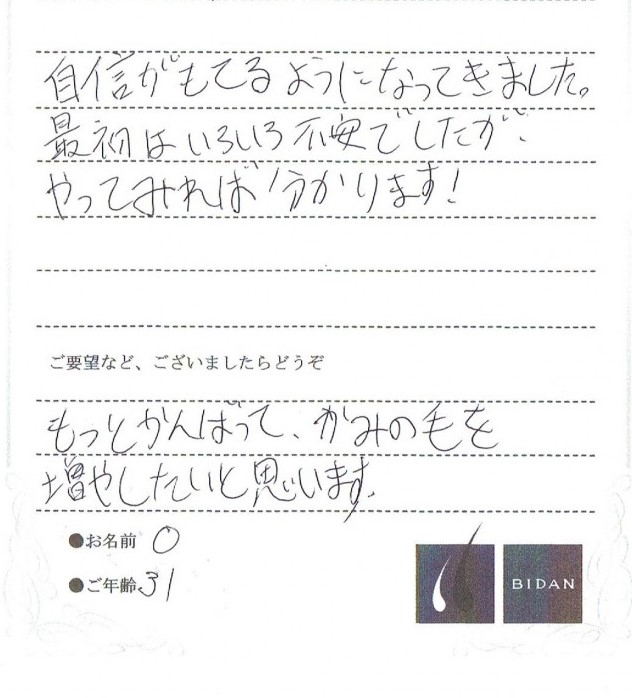 自信がもてるようになってきました。
最初はいろいろ不安でしたが、
やってみれば分かります!
ご要望など、ございましたらどうぞ
もっとかんばって、かみの毛を
増やしたいと思います。
●お名前 O
●ご年齢 31
BIDAN